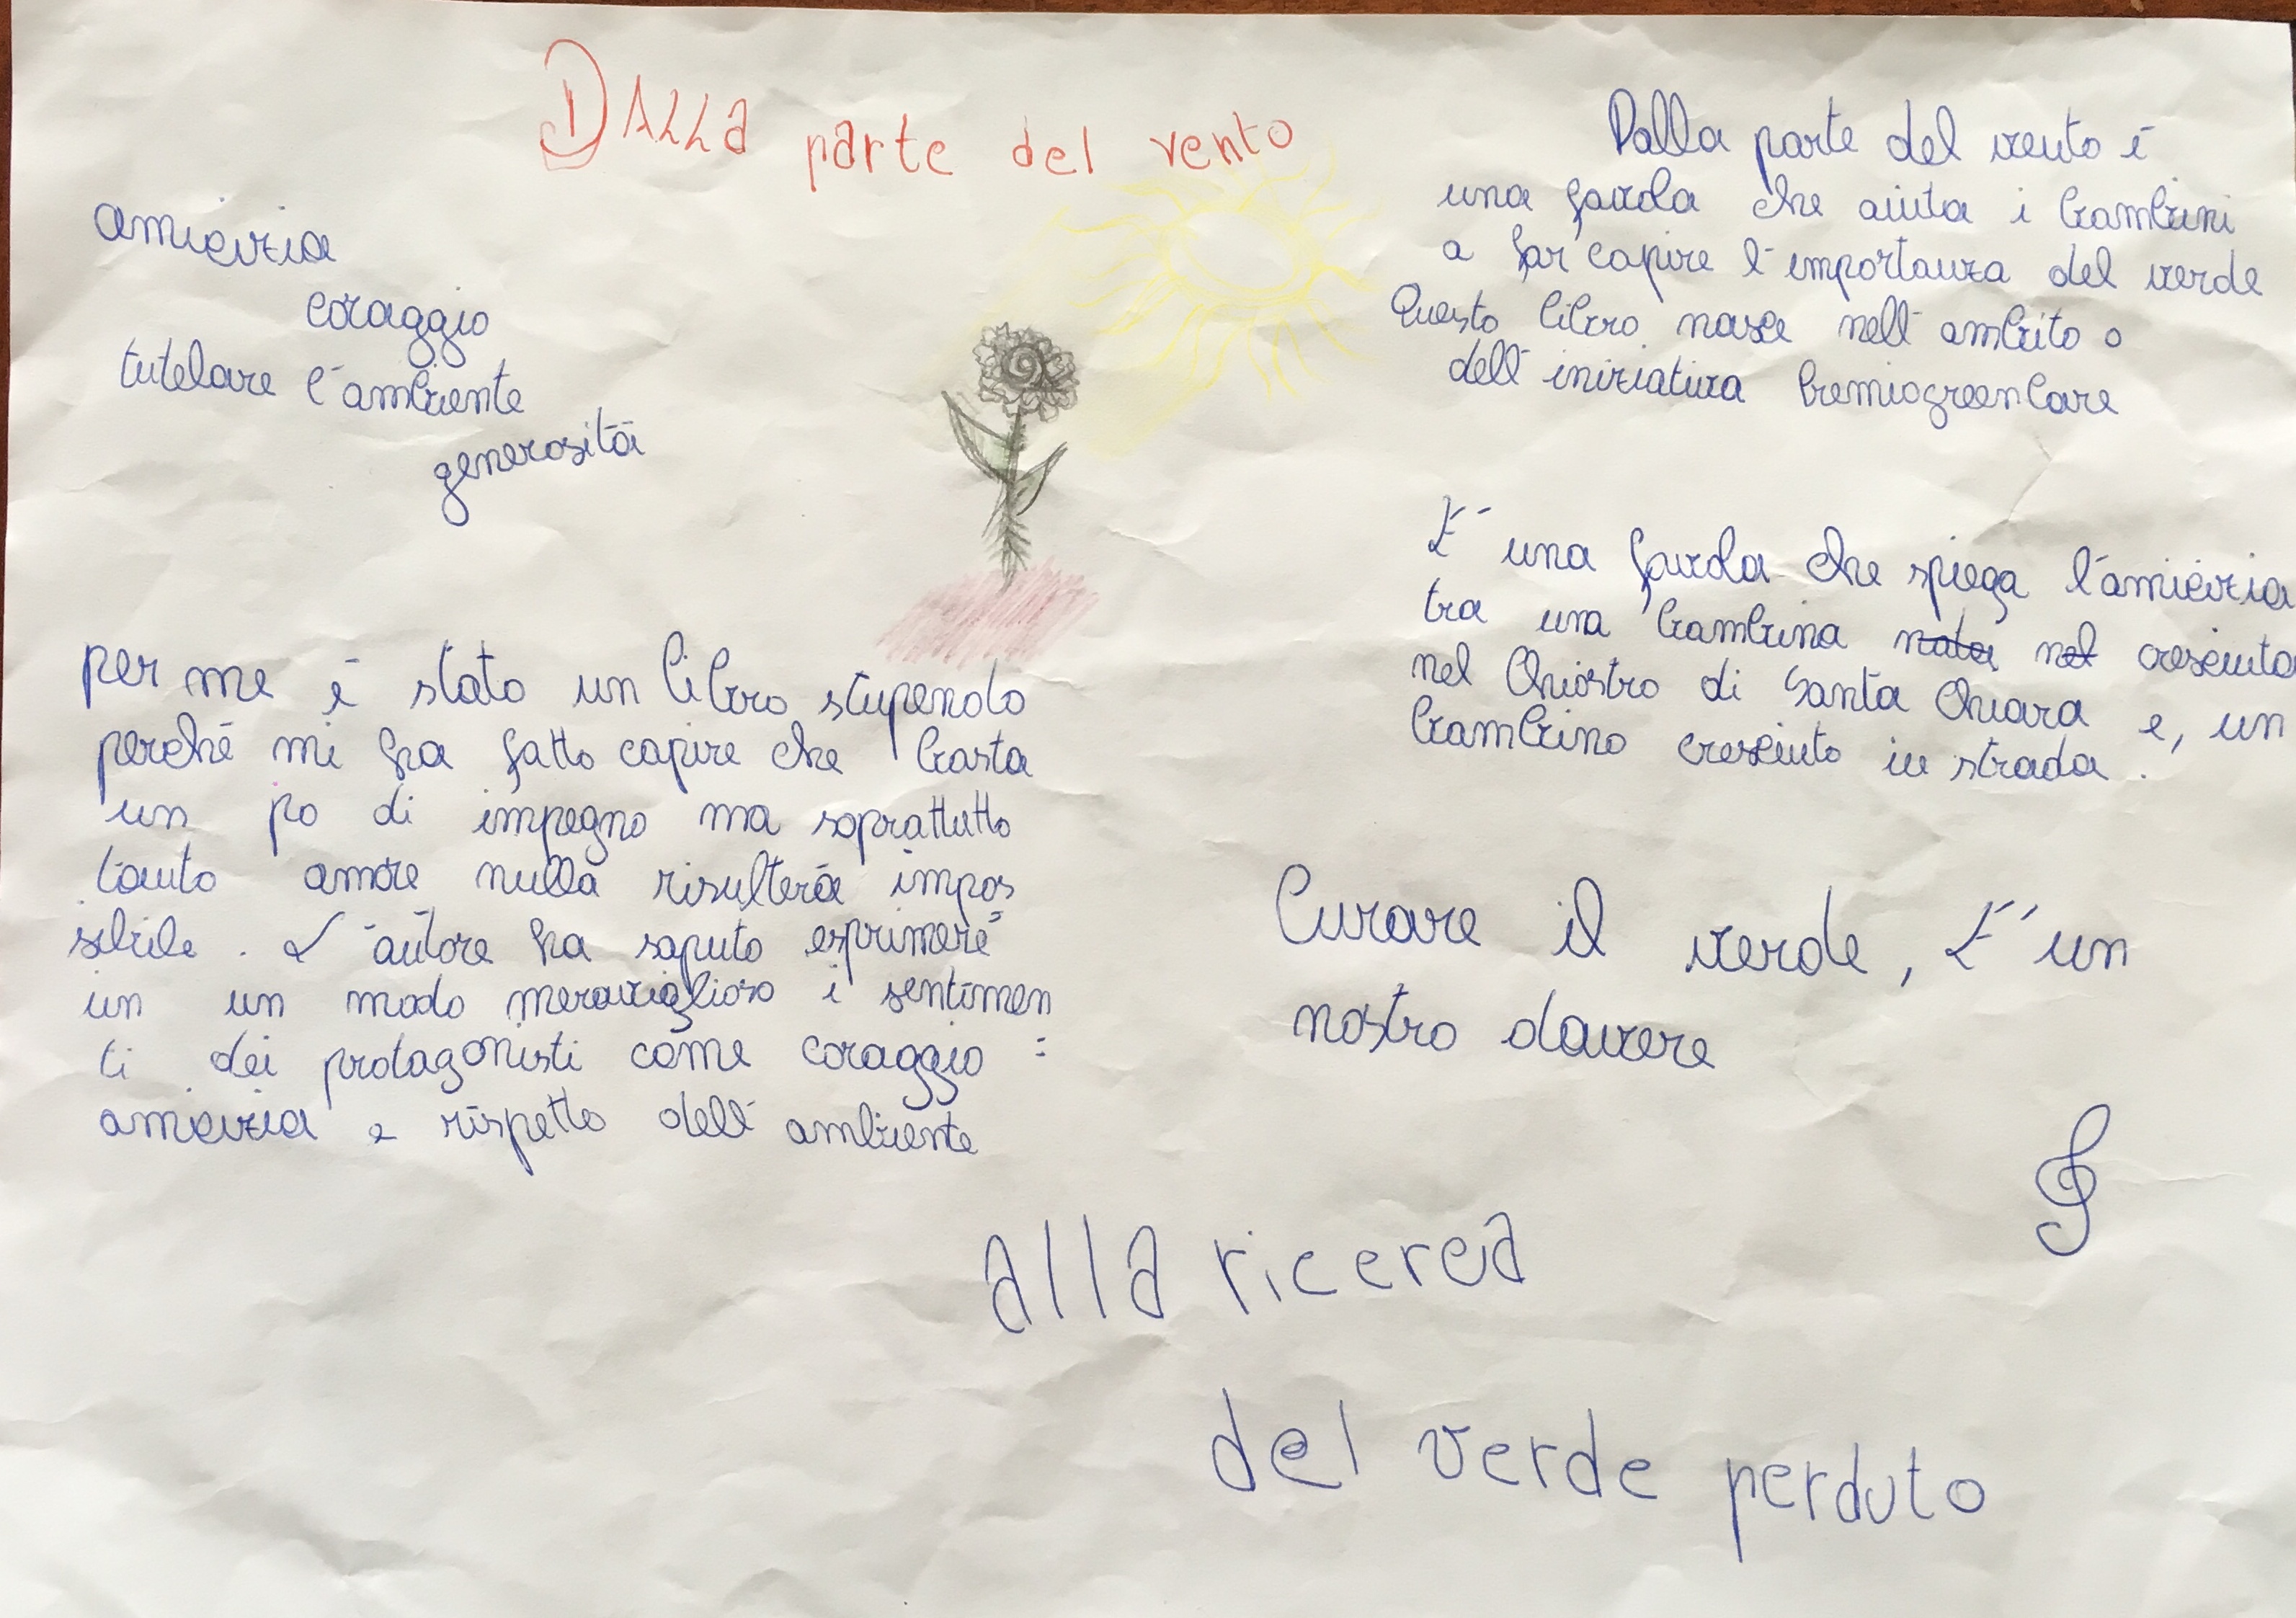 DALLA parte del vento
amicizia
coraggio
tutelare l'ambiente
generosità
Dalla parte del vento è
una favola che aiuta i bambini
a far capire l'importanza del verde
Questo libro nasce nell'ambito o
dell'iniziativa PremiogreenCare
E' una favola che spiega l'amicizia
tra una bambina nata nel cresciuta
nel Chiostro di Santa Chiara e, un
bambino cresciuto in strada.
per me è stato un libro stupendo
perché mi ha fatto capire che basta
un po di impegno ma soprattutto
tanto amore nulla risulterà impos
sibile. L'autore ha saputo esprimere
in un modo meraviglioso i sentimen
ti dei protagonisti come coraggio =
amicizia e rispetto dell'ambiente
Curare il verde, E' un
nostro dovere
alla ricerca
del verde perduto